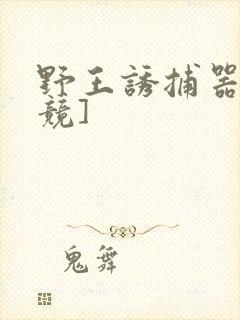 野王誘捕器
競]
鬼舞